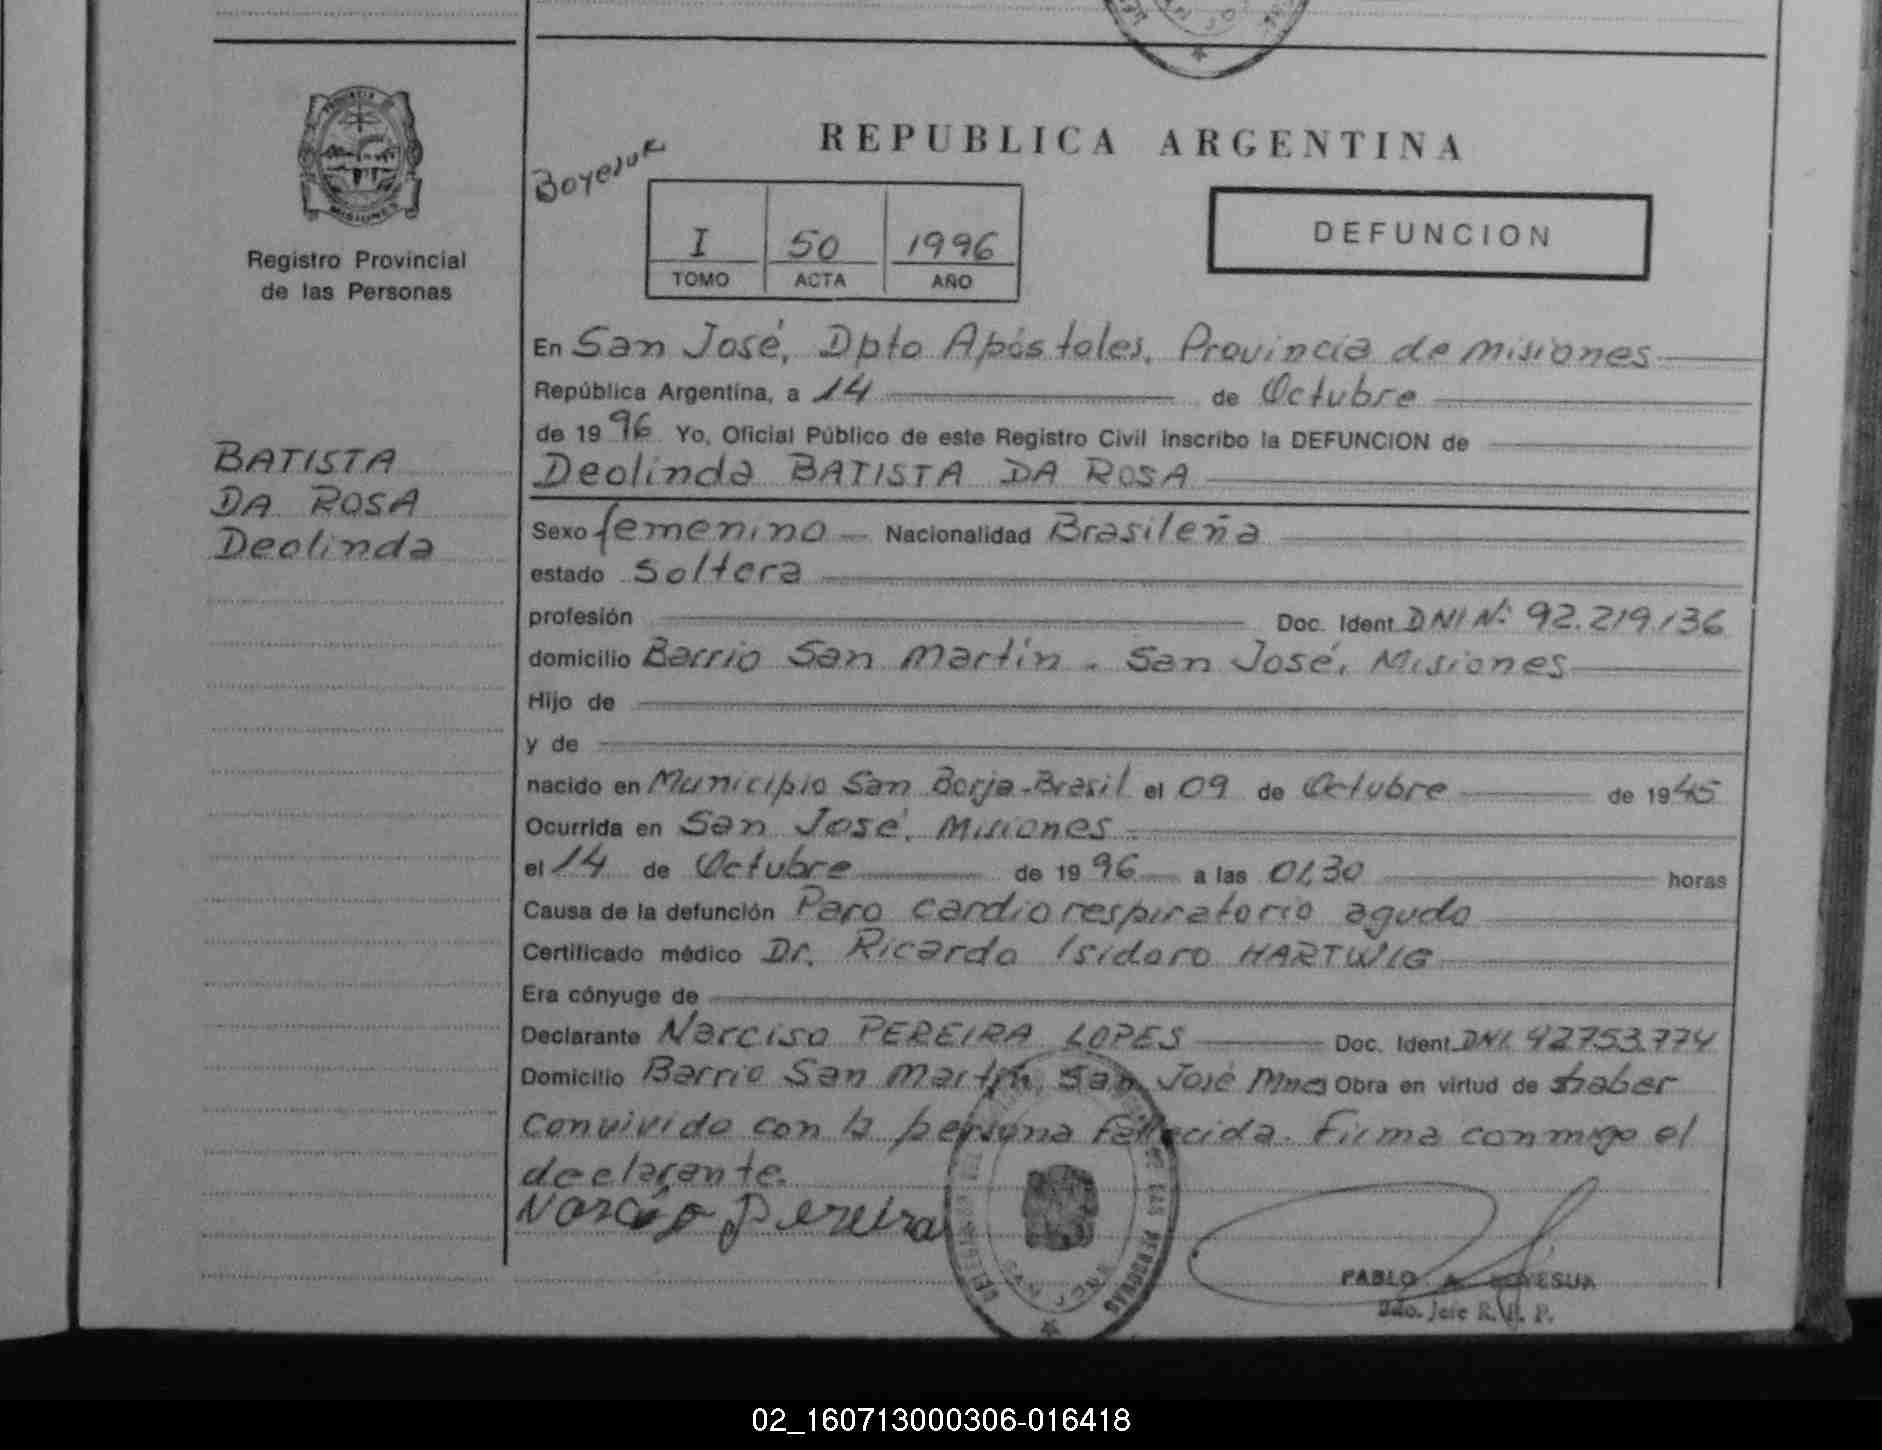 PROVINCIA
MISIONES
Registro Provincial
de las Personas
BATISTA
DA ROSA
Deolinda
REPUBLICA ARGENTINA
I 50 1996
TOMO ACTA AÑO
DEFUNCION
En San José, Dpto Apóstoles, Provincia de Misiones
República Argentina, a 14 de Octubre
de 1996 Yo, Oficial Público de este Registro Civil inscribo la DEFUNCION de
Deolinda BATISTA DA ROSA
Sexo femenino Nacionalidad Brasileña
estado Soltera
profesión Doc. Ident. DNI Nº 92.219.136
domicilio Barrio San Martín - San José, Misiones
Hijo de
y de
nacido en Municipio San Borja-Brasil el 09 de Octubre de 1945
Ocurrida en San José, Misiones
el 14 de Octubre de 1996 a las 01,30 horas
Causa de la defunción Paro cardiorespiratorio agudo
Certificado médico Dr. Ricardo Isidoro HARTWIG
Era cónyuge de
Declarante Narciso PEREIRA LOPES Doc. Ident. DNI. 92753.774
Domicilio Barrio San Martín, San José Mnes Obra en virtud de haber
convivido con la persona fallecida. Firma conmigo el
declarante.
Narciso Pereira
PABLO A. BOYESUK
R. P. P.
02_160713000306-016418